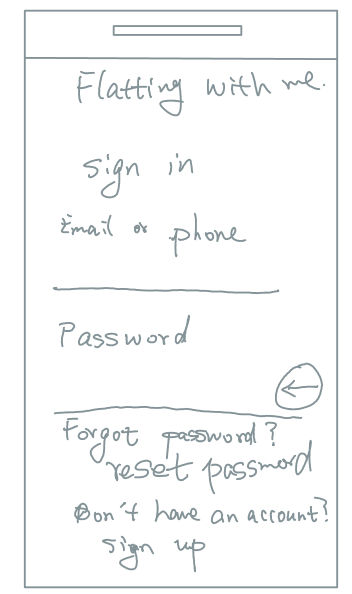 Flatting with me.
sign in
Email or phone
Password
Forgot password?
reset password
Don't have an account?
sign up